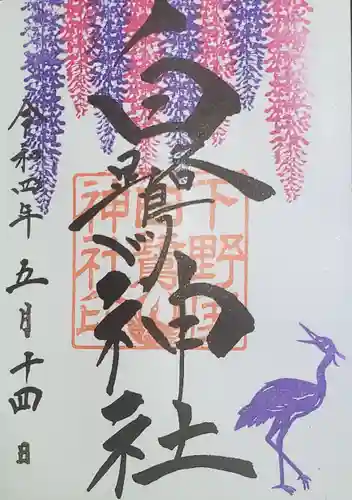 白鷺神社
下野国
白鷺
神社印
令和四年五月十四日